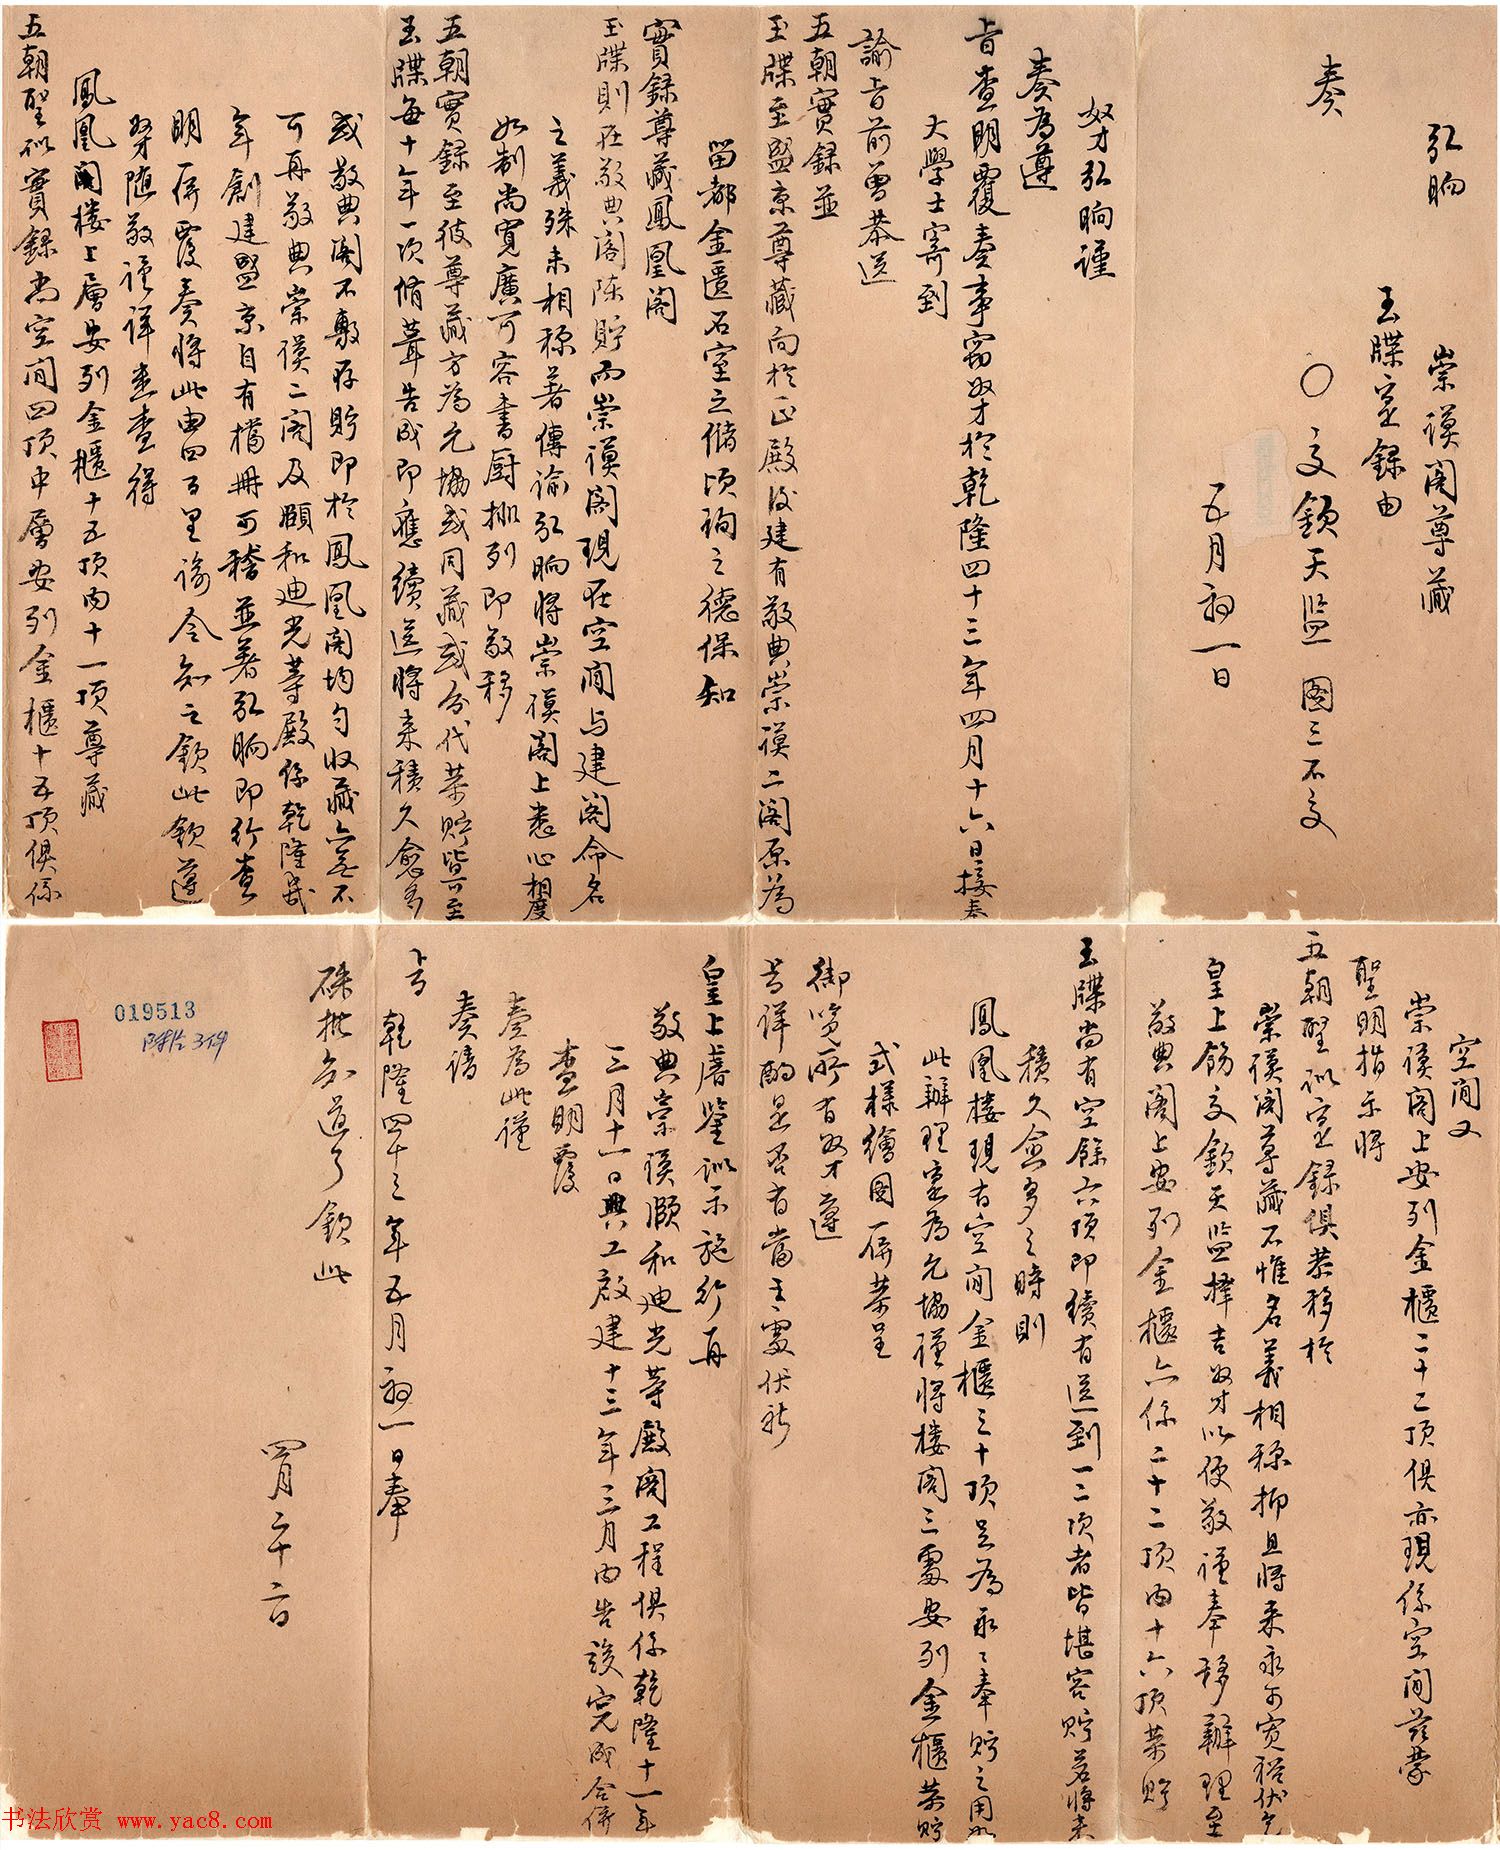 弘晌
崇謨閣尊藏
玉牒寔録由
奏
○交欽天監 圖三不交
五月初一日
奴才弘晌謹
奏為遵
旨查明覆奏事竊奴才於乾隆四十三年四月十六日接奉
大學士寄到
諭旨前曽恭送
五朝實録並
玉牒至盛京尊藏向於正殿後建有敬典崇謨二閣原為
留都金匱石室之儲頃詢之德保知
實録尊藏鳳凰閣
玉牒則在敬典閣陳貯而崇謨閣現在空間与建閣命名
之義殊未相稱著傳諭弘晌將崇謨閣上悉心相度
如制尚寬廣可容書厨排列即敬移
五朝實録至彼尊藏方為允協或同藏或分代恭貯皆可至
玉牒每十年一次脩葺告成即應續送將来積久愈多
或敬典閣不敷存貯即於鳳凰閣均勻收藏亦无不
可再敬典崇謨二閣及頤和迪光等殿係乾隆幾
年創建盛京自有檔冊可稽並著弘晌即行查
明併覆奏將此由四百里諭令知之欽此欽遵
奴才隨敬謹詳悉查得
鳳凰閣樓上層安列金櫃十五頂內十一頂尊藏
五朝聖訓實録尚空間四頂中層安列金櫃十五頂俱係
空間又
崇謨閣上安列金櫃二十二頂俱亦現係空間茲蒙
聖明指示將
五朝聖訓寔録俱恭移於
崇謨閣尊藏不惟名義相稱抑且將来永可寬裕伏乞
皇上飭交欽天監擇吉奴才以便敬謹奉移辦理至
敬典閣上安列金櫃亦係二十二頂內十六頂恭貯
玉牒尚有空餘六頂即續有送到一二項者皆堪容貯若將来
積久愈多之時則
鳳凰樓現有空間金櫃三十頂足為永〻奉貯之用如
此辦理寔為允協謹將樓閣三處安列金櫃恭貯
式樣繪圖一併恭呈
御覽所有奴才遵
旨詳酌是否有當之處伏祈
皇上睿鑒訓示施行再
敬典崇謨頤和迪光等殿閣工程俱係乾隆十一年
三月十一日興工啟建十三年三月內告竣完成合併
查明覆
奏為此謹
奏請
旨
乾隆四十三年五月初一日奉
硃批知道了欽此
四月二十六日
019513
书法欣赏 www.yac8.com